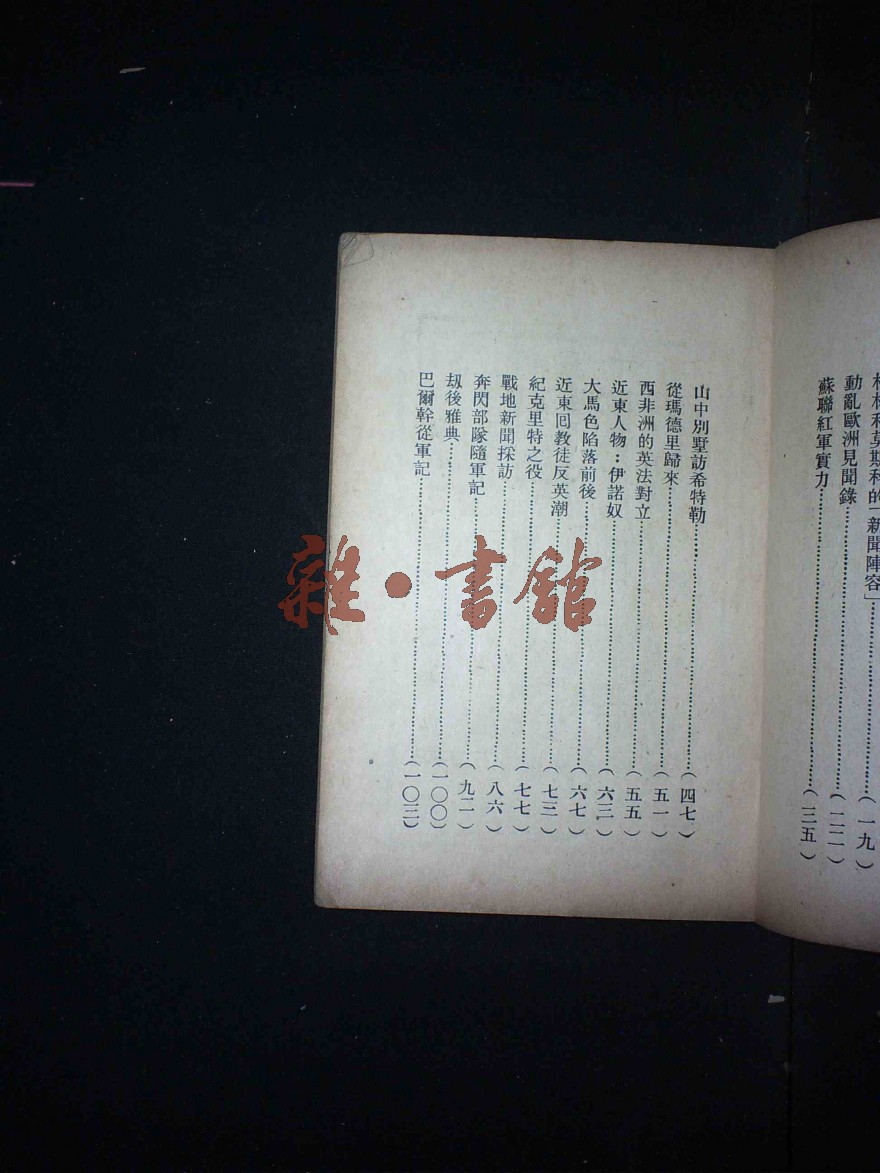 林和莫斯科的「新聞陣容」……(一九)
動亂歐洲見聞錄……(二二)
蘇聯紅軍實力……(三五)
山中別墅訪希特勒……(四七)
從瑪德里歸來……(五一)
西非洲的英法對立……(五五)
近東人物：伊諾奴……(六三)
大馬色陷落前後……(六七)
近東回教徒反英潮……(七三)
紀克里特之役……(七七)
戰地新聞採訪……(八六)
奔閃部隊隨軍記……(九二)
劫後雅典……(一〇〇)
巴爾幹從軍記……(一〇三)
雜·書館